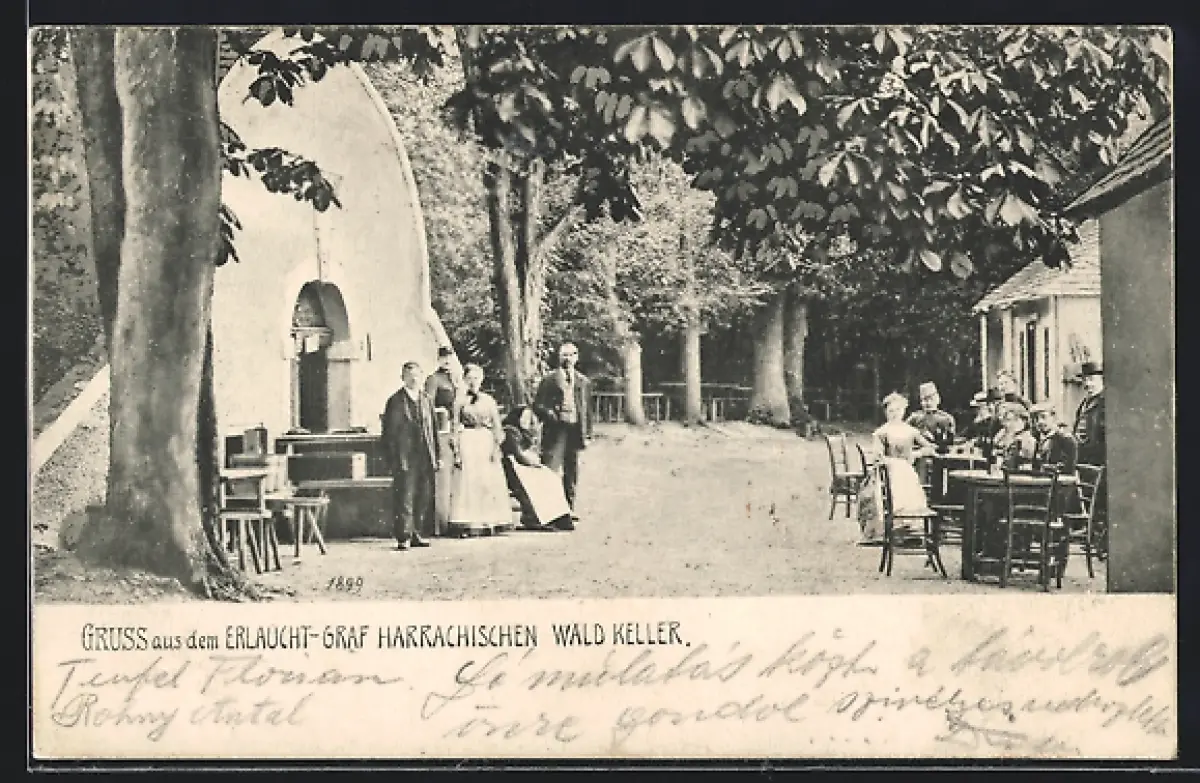 1899
GRUSS aus dem ERLAUCHT-GRAF HARRACHISCHEN WALD KELLER.
Teufel Florian.
Rohny Antal
Jó múlatás közt a távolból
önre gondol szivélyes